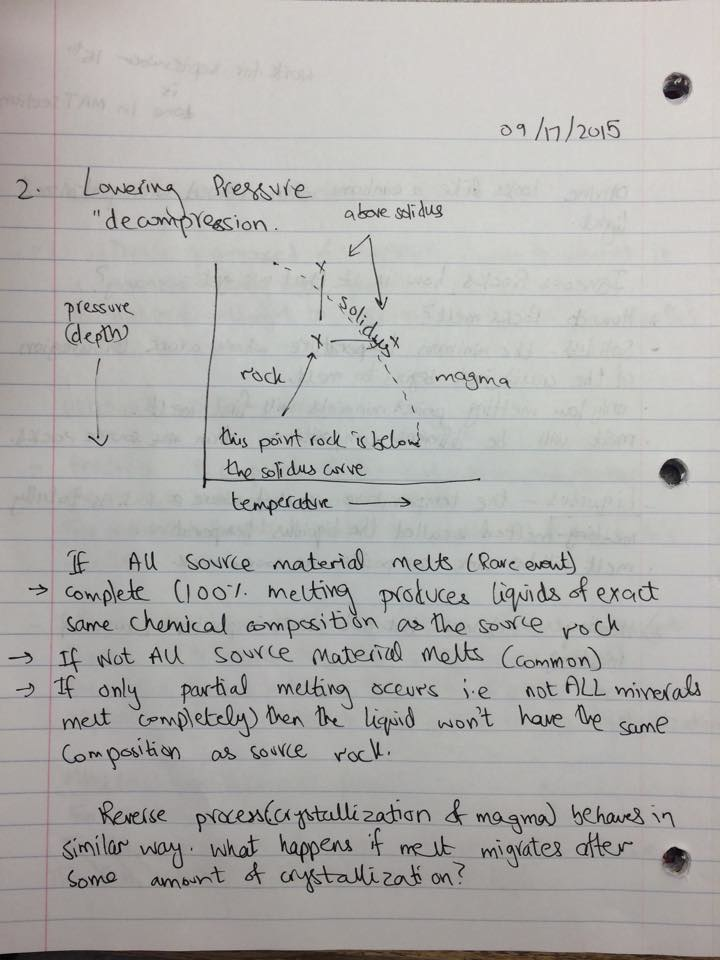 09/17/2015
2. Lowering Pressure
"decompression.
above solidus
x
solidus
pressure
(depth)
x
x
rock
magma
this point rock is below
the solidus curve
temperature →
If All source material melts (Rare event)
→ complete (100% melting produces liquids of exact
same chemical composition as the source rock
→ If Not All source material melts (common)
→ If only partial melting occurs i.e not ALL minerals
melt completely) then the liquid won't have the same
composition as source rock.
Reverse process(crystallization of magma) behaves in
similar way. what happens if melt migrates after
some amount of crystallization?